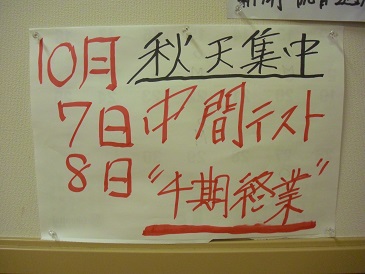 10月 秋天集中
7日 中間テスト
8日 〝期終業〟